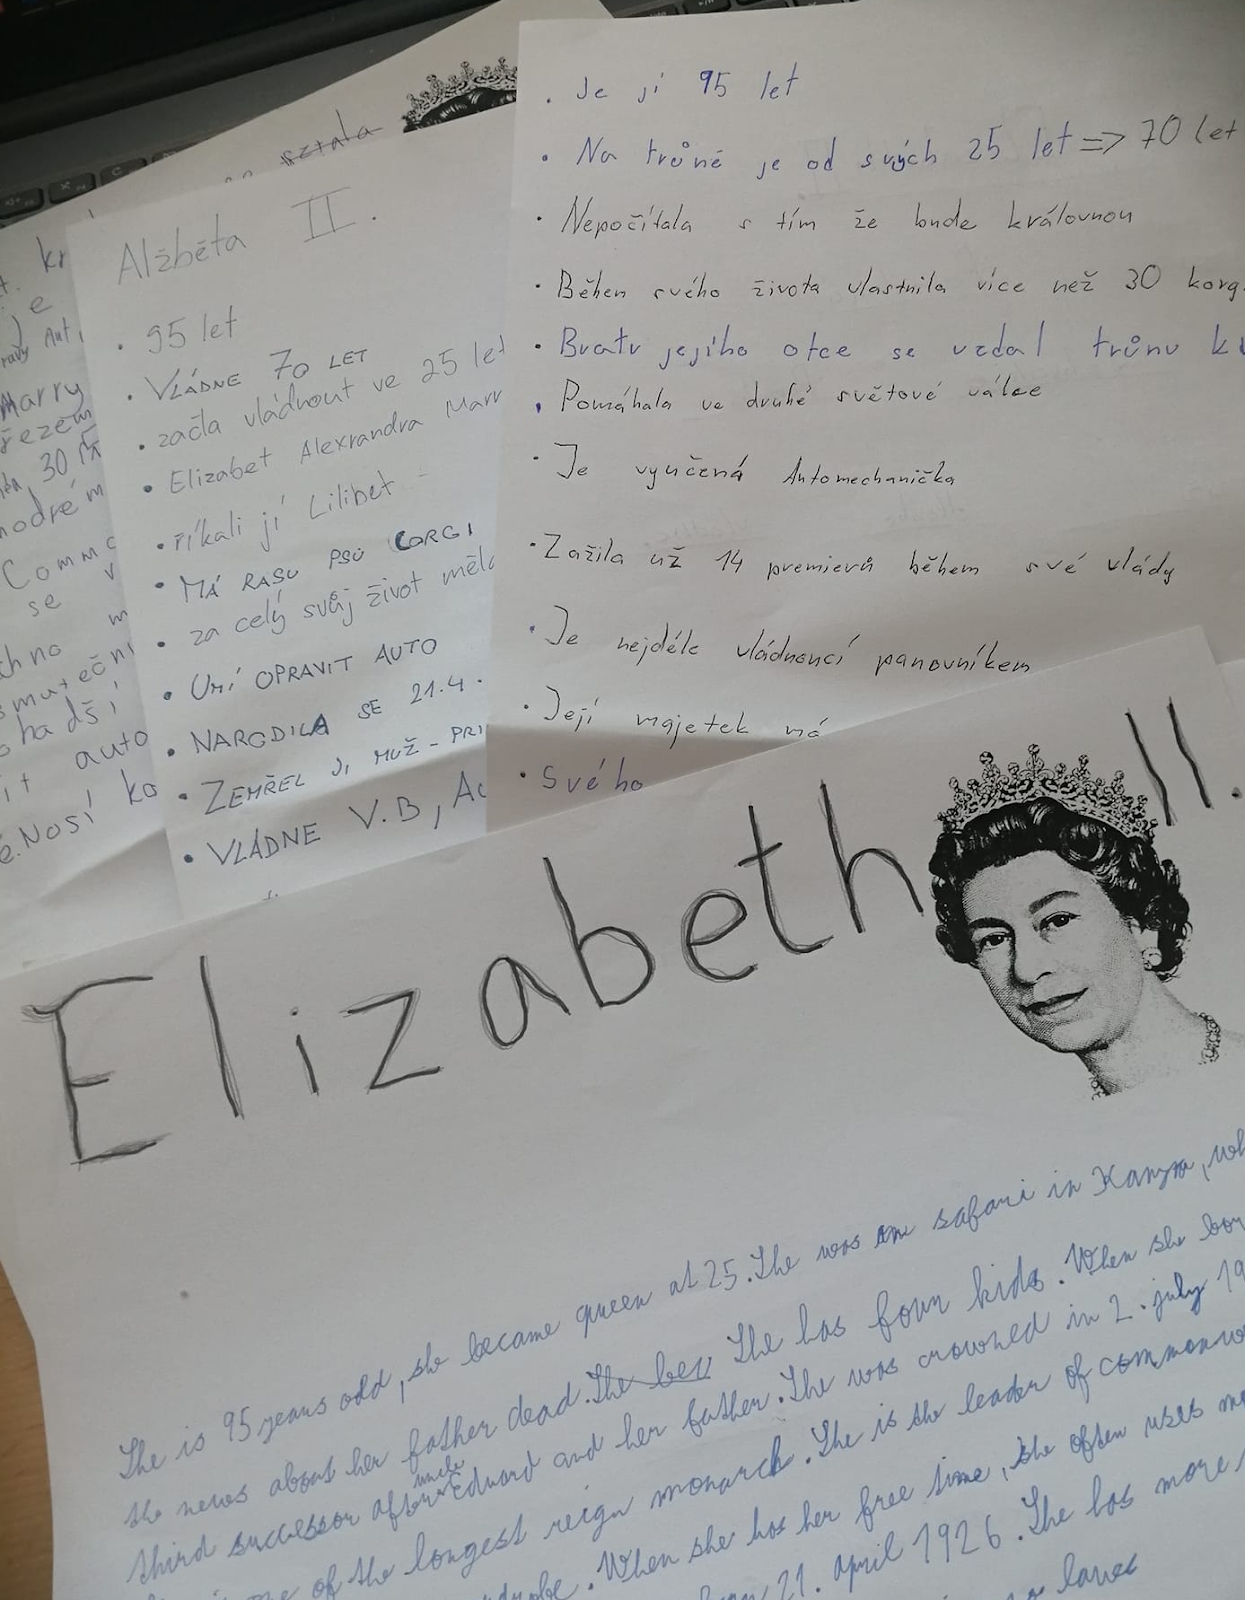 sztala
Alžběta II.
• 95 let
• VLÁDNE 70 LET
• začla vládnout ve 25 let
• Elizabet Alexrandra Marr
• říkali jí Lilibet
• MÁ RASU PSŮ CORGI
• za celý svůj život měla
• UMÍ OPRAVIT AUTO
• NARODILA SE 21.4.
• ZEMŘEL JI MUŽ - PRI
• VLÁDNE V.B, Au
kr
je
Aut
Marry
řezem
30
modré m
Comm
se v
m
chno
smuteční
auto
it
ko
Nosí
• Je jí 95 let
• Na trůně je od svých 25 let => 70 let
• Nepočítala s tím že bude královnou
• Během svého života vlastnila více než 30 korg
• Bratr jejího otce se vzdal trůnu k
• Pomáhala ve druhé světové válce
• Je vyučená Automechanička
• Zažila už 14 premierů během své vlády
• Je nejdéle vládnoucí panovníkem
• Její majetek má
• Svého
Elizabeth II.
The is 95 years odd, she became queen at 25. The was on safari in Kanya, wh
the news about her father dead. The beu The has four kids. When she bor
third successor after uncle Eduard and her father. The was crowned in 2. july 19
one of the longest reign monarch. The is the leader of commonw
When she has her free time, she often uses m
21. april 1926. The has more
loves